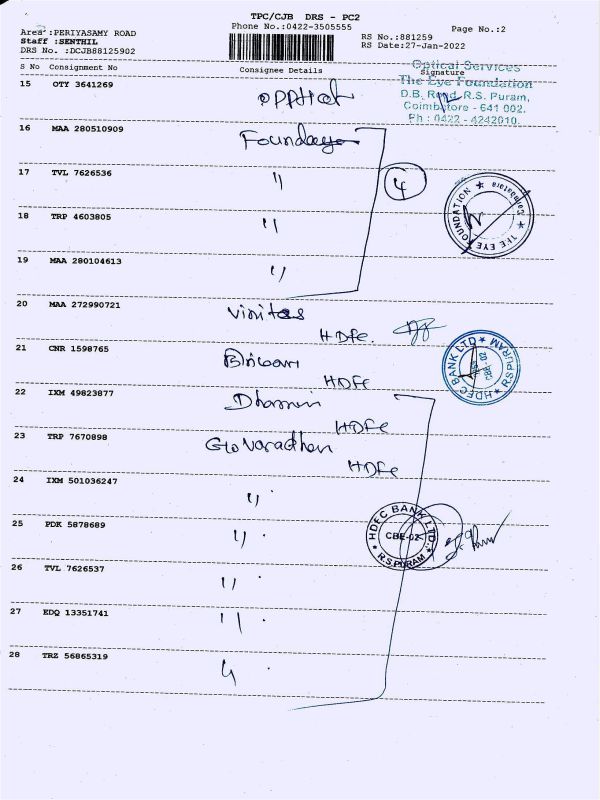 TPC/CJB DRS - PC2
Phone No.:0422-3505555
Page No.:2
Area :PERIYASAMY ROAD
Staff :SENTHIL
DRS No. :DCJB88125902
RS No.:881259
RS Date:27-Jan-2022
S No Consignment No Consignee Details Signature
Optical Services
The Eye Foundation
D.B. Road, R.S. Puram,
Coimbatore - 641 002.
Ph : 0422 - 4242010.
15 OTY 3641269
16 MAA 280510909
17 TVL 7626536 "
4
18 TRP 4603805 "
THE EYE FOUNDATION ★ Coimbatore ★
19 MAA 280104613 "
20 MAA 272990721
HDFC
21 CNR 1598765
HDFC
HDFC BANK LTD ★ R S PURAM ★
CBE-02
22 IXM 49823877
HDFC
23 TRP 7670898 Govaradhan
HDFC
24 IXM 501036247 "
25 PDK 5878689 "
HDFC BANK LTD. ★ R.S.PURAM ★
CBE-02
26 TVL 7626537 "
27 EDQ 13351741 "
28 TRZ 56865319 "